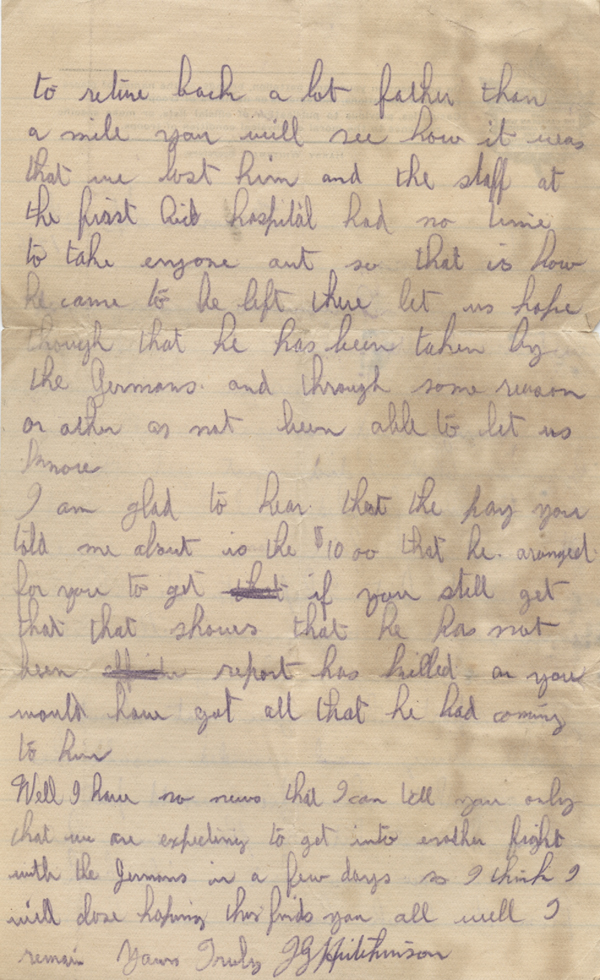 to retire back a lot father than
a mile you will see how it was
that we lost him and the staff at
the first Aid hospital had no time
to take enyone out so that is how
he came to be left there let us hope
though that he has been taken by
the Germans. and through some reason
or other as not been able to let us
know
I am glad to hear that the pay you
told me about is the $10 00 that he aranged
for you to get that if you still get
that that shows that he has not
been report has killed as you
would have got all that he had coming
to him
Well I have no news that I can tell you only
that we are expecting to get into enother fight
with the Germans in a few days so I think I
will close hoping this finds you all well I
remain Yours Truly J G Hutchinson